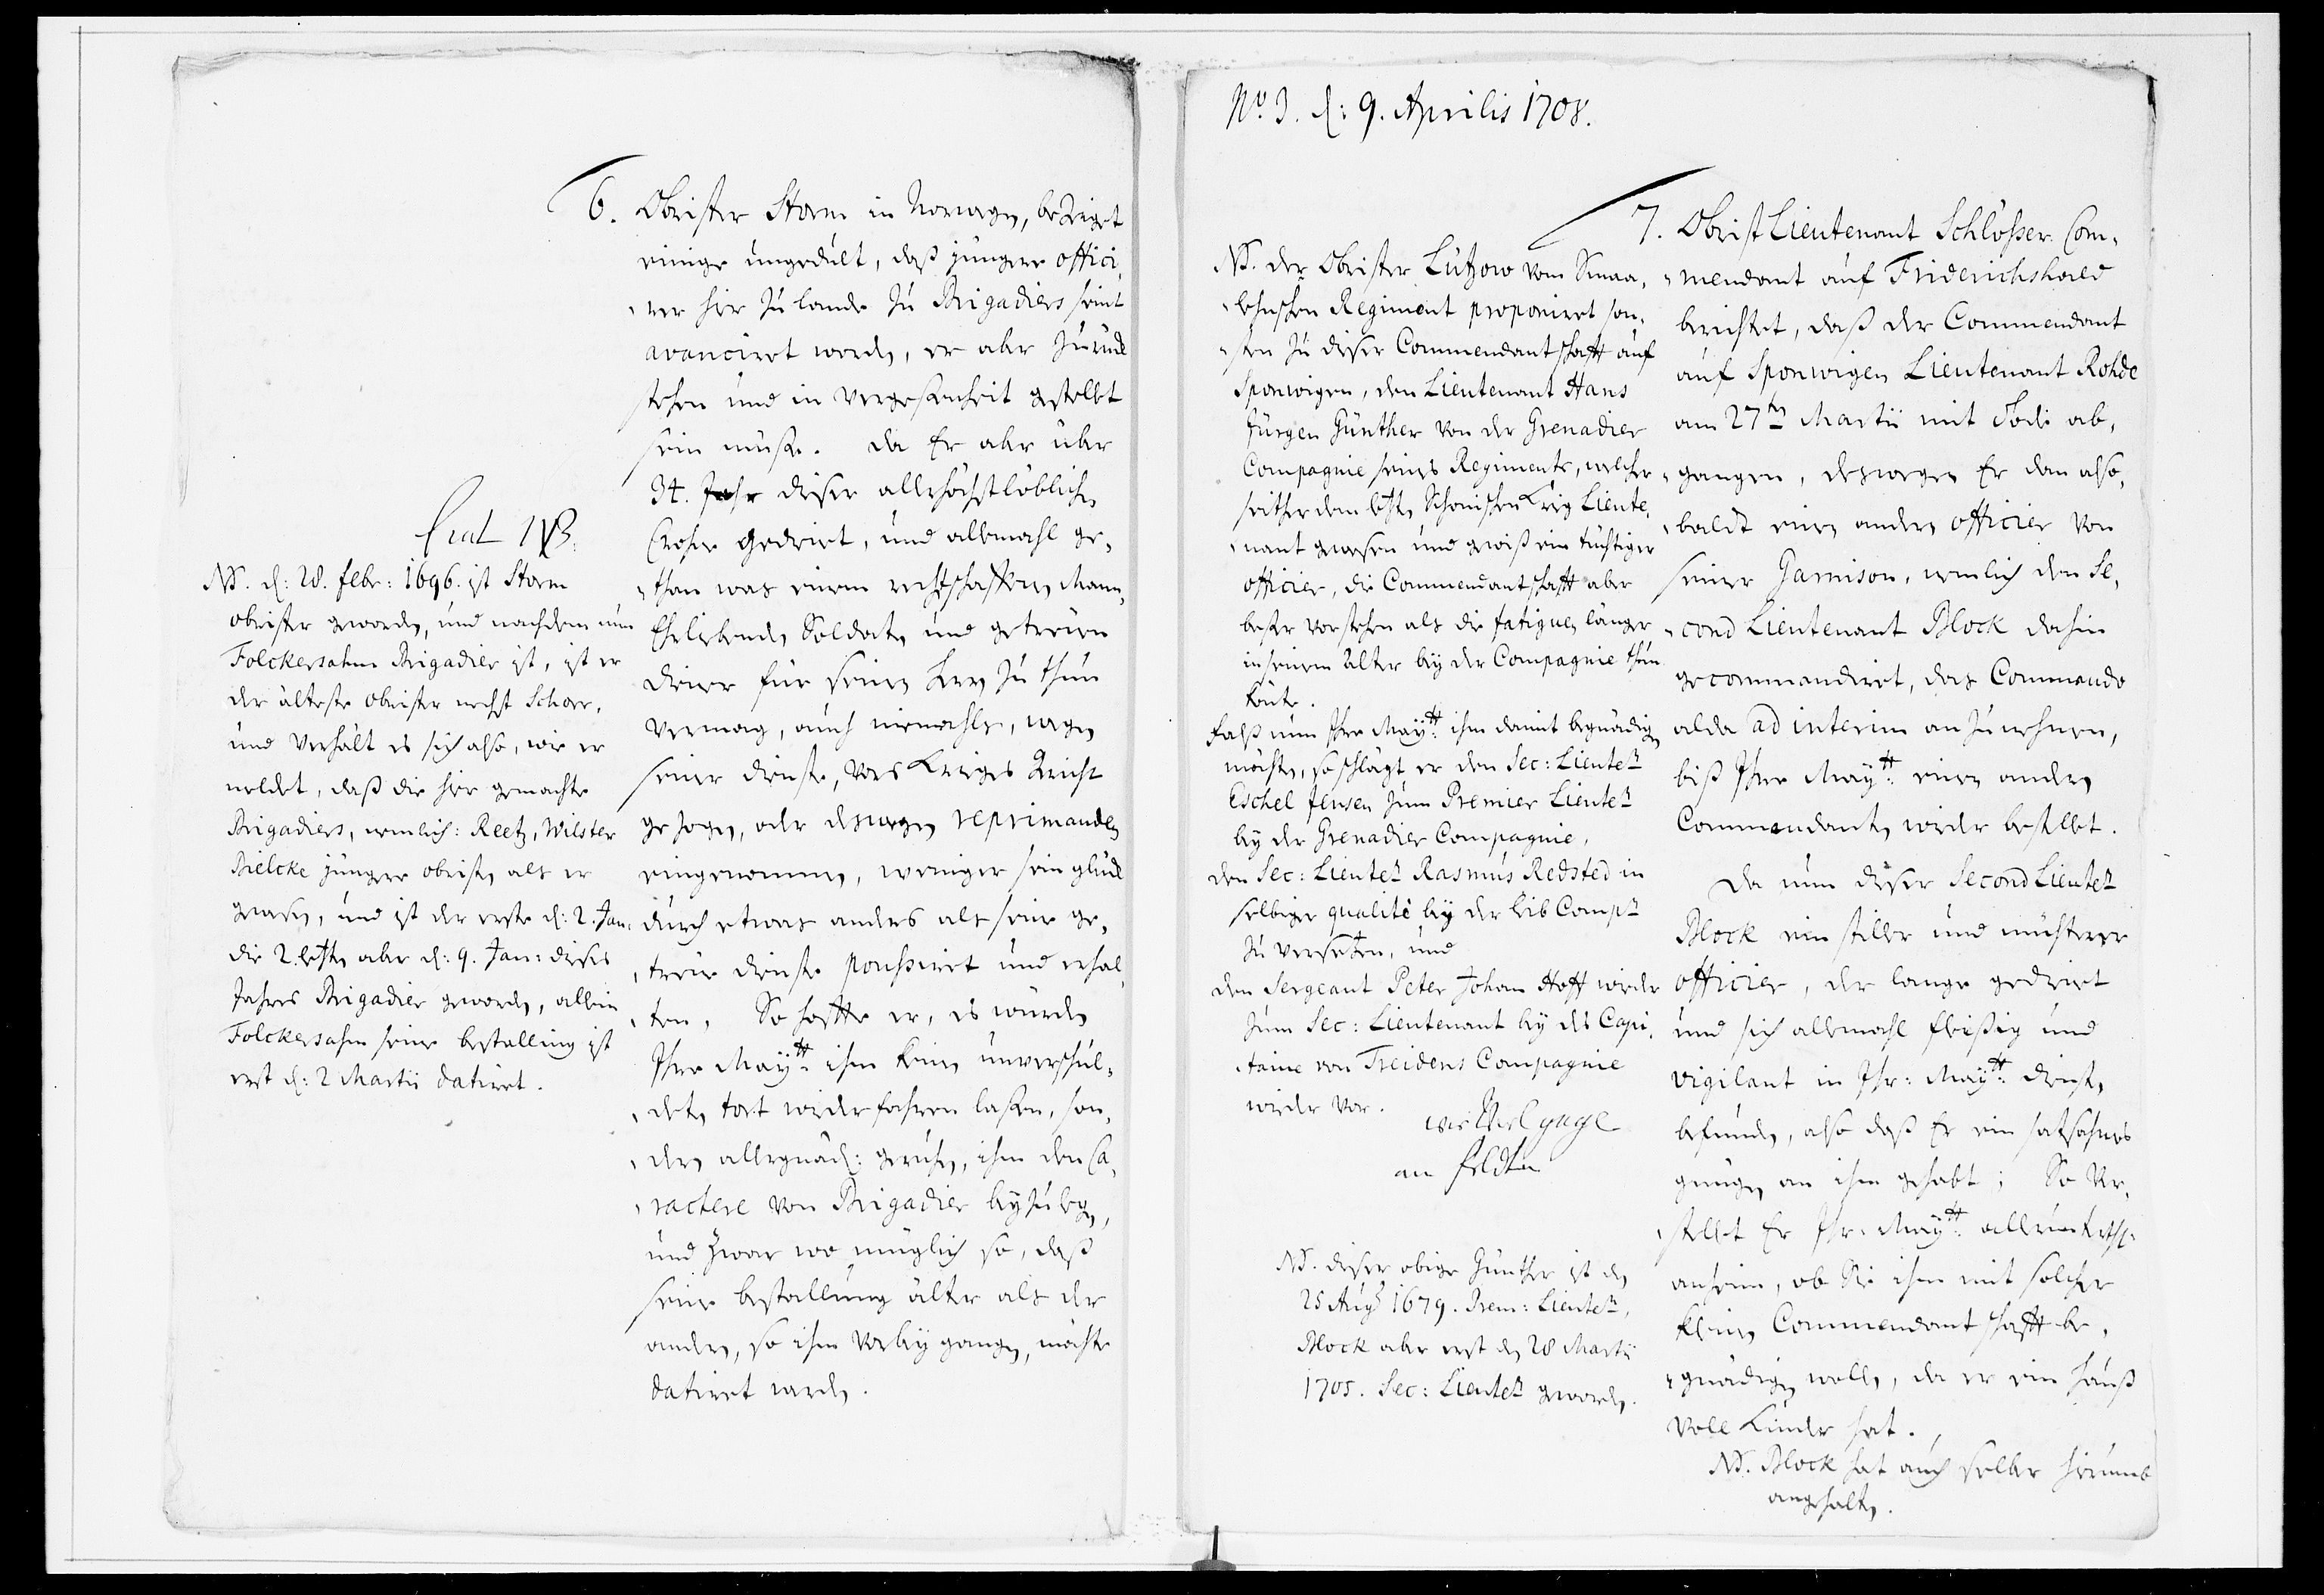 6. Obrister Storm in Norwegen, bezeiget
einige ungedult, daß jüngere offici,
,,rer hir zu lande zu Brigadiers seint
avanciret worden, er aber zurück
stehen und in vergeßenheit gestellet
sein müße. da Er aber über
34. Jahr diser allerhöchstlöblichen
Crohne gedienet, und allemahl ge,
,,than was einem rechtschaffenen Mann,
Ehrliebenden Soldaten und getreuen
diener für seinen Herren zu thun
vermag, auch niemahls, wegen
seiner dienste, vors Krieges Gericht
gezogen, oder deswegen reprimanden
eingenommen, weniger sein glück
durch etwas anders als seine ge,
,,treue dienste poussiret und erhal,
,,ten, So hoffte er, es würden
Ihre Maytt: ihm keinen unverschul,
,,deten tort wiederfahren laßen, son,
,,dern allergnäd: geruhen, ihm den Ca,
,,ractere von Brigadier beyzulegen,
und zwar wo müglich so, daß
seine bestallung älter als der
andern, so ihm vorbey gangen, möchte
datiret werden.
NB. d: 28. febr: 1696. ist Storm
obrister geworden, und nachdem nun
Folckersahm Brigadier ist, ist er
der älteste obrister nechst Schorr,
und verhält es sich also, wie er
meldet, daß die hier gemachte
Brigadiers, nemlich: Reetz, Wilster
Bielcke jüngere obristen als er
gewesen, und ist der erste d: 2. Jan:
die 2. letzten aber d: 9. Jan: dieses
Jahres Brigadier geworden, allein
Folckersahm seine bestallung ist
erst d: 2 Martii datiret.
No. 3. d: 9. Aprilis 1708.
7. ObristLieutenant Schlößer Com,
,,mendant auf Friderichshald
berichtet, daß der Commendant
auf Sponwigen Lieutenant Rohde
am 27ten Martii mit Tode ab,
,,gangen, deswegen Er dan also,
,,baldt einen andern officier von
seiner Garnison, nemlich den Se,
,,cond Lieutenant Block dahin
gecommandiret, das Commando
alda ad interim anzunehmen,
biß Ihre Maytt: einen andern
Commendanten wieder bestellet.
Da nun dieser Second Lieutet
Block ein stiller und nüchterer
officier, der lange gedienet
und sich allemahl fleißig und
vigilant in Ihr: Maytt: dienste
befunden, also daß Er ein
genügen an ihm gehabt; So Ver,
,,stellet Er Ihr: Maytt: allerunterth:
anheim, ob Sie ihm mit solcher
kleinen Commendantschafft be,
,,gnädigen wollen, da er ein hauß
voll Kinder hat.
NB. Block hat auch selber hierumb
angehalten.
NB. der Obrister Lützow vom Smaa,
,,lehnschen Regiment proponiret son,
,,sten zu dieser Commendantschafft auf
Sponwigen, den Lieutenant Hans
Jürgen Günther von der Grenadier
Compagnie seines Regiments, welcher
seither dem letzten Schonischen Krieg Lieute,
,,nant gewesen und gewiß ein tüchtiger
officier, die Commendantschafft aber
beßer vorstehen als die fatiguen länger
in seinem Alter bey der Compagnie thun
könte.
falß nun Ihre Maytt: ihm damit begnädigen
möchten, so schlägt er den Sec: Lieutet
Eschel Jensen zum Premier Lieutet
bey der Grenadier Compagnie,
den Sec: Lieutet Rasmus Redsted in
selbiger qualité bey der leib Compe
zu versetzen, und
den Sergeant Peter Johan Hoff wieder
zum Sec: Lieutenant bey des Capi,
,,taine von Treidens Compagnie
wieder vor.
NB. dieser obige Günther ist den
25 Aug: 1679. Prem: Lieutet,
Block aber erst den 28 Martii
1705. Sec: Lieutet geworden.